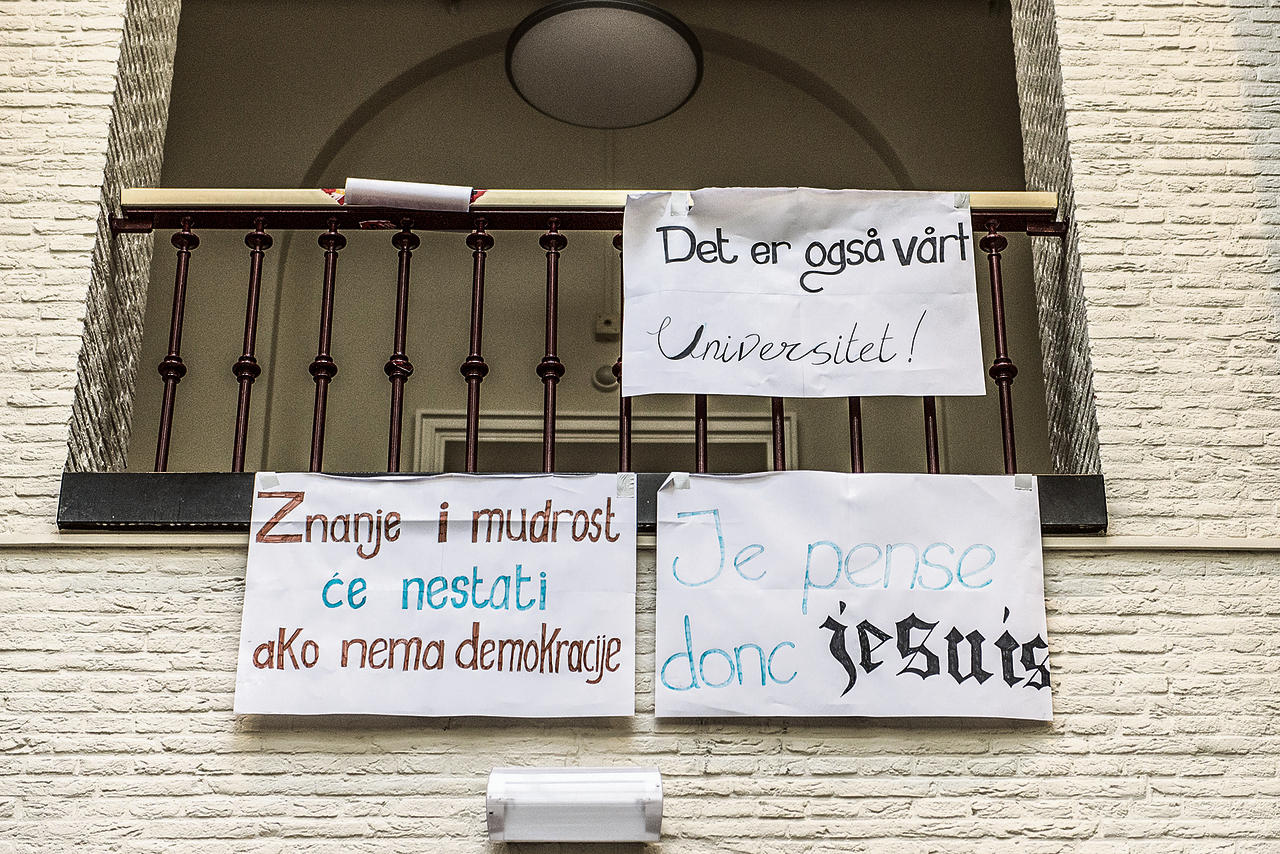 Det er også vårt
Universitet!
Znanje i mudrost
će nestati
ako nema demokracije
Je pense
donc jesuis